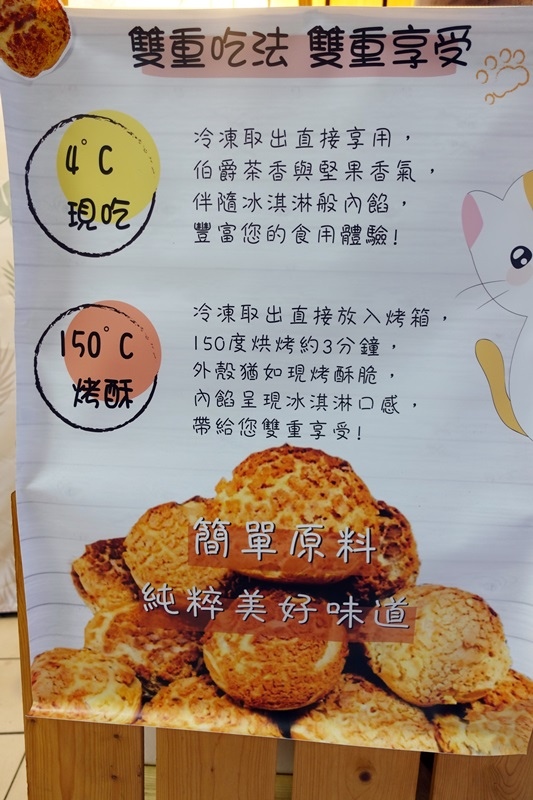 雙重吃法 雙重享受
4°C
現吃
冷凍取出直接享用，
伯爵茶香與堅果香氣，
伴隨冰淇淋般內餡，
豐富您的食用體驗!
150°C
烤酥
冷凍取出直接放入烤箱，
150度烘烤約3分鐘，
外殼猶如現烤酥脆，
內餡呈現冰淇淋口感，
帶給您雙重享受!
簡單原料
純粹美好味道